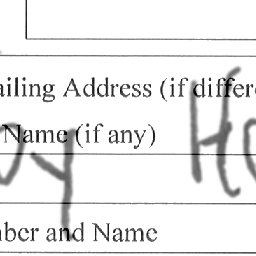 ailing Address (if differe
Name (if any)
nber and Name